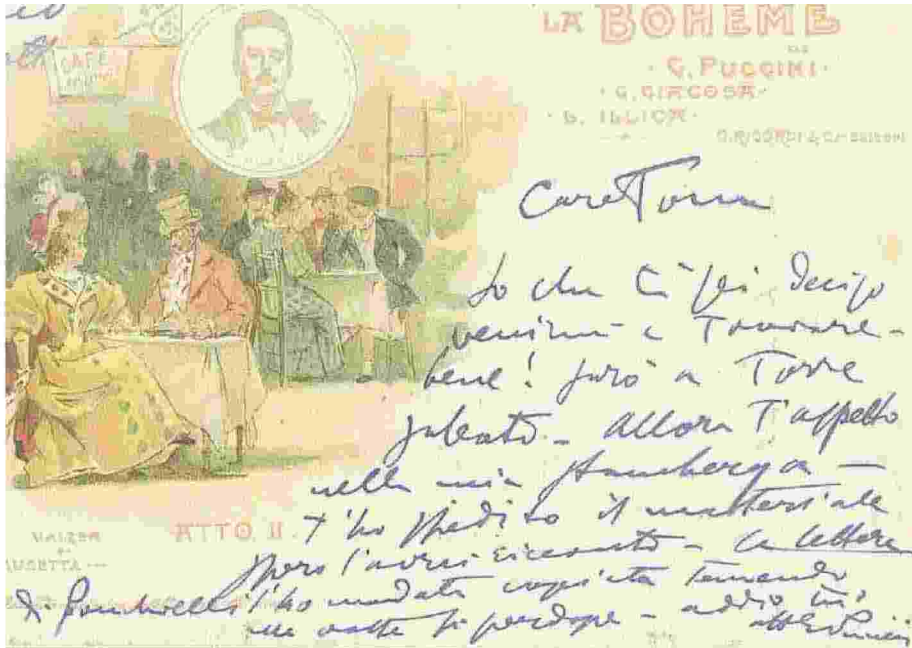 CAFÉ
LA BOHEME
DI
G. PUCCINI
G. GIACOSA
L. ILLICA
G. RICORDI & C. EDITORI
Caro Toma
So che ti sei deciso
venirmi a trovare -
bene! sarò a Torre
sabato - allora t'aspetto
nella mia
t'ho spedito il materiale
spero l'avrai ricevuto - la lettera
di t'ho mandata copiata temendo
si perdesse - addio tuo
VALZER
DI
MUSETTA
ATTO II